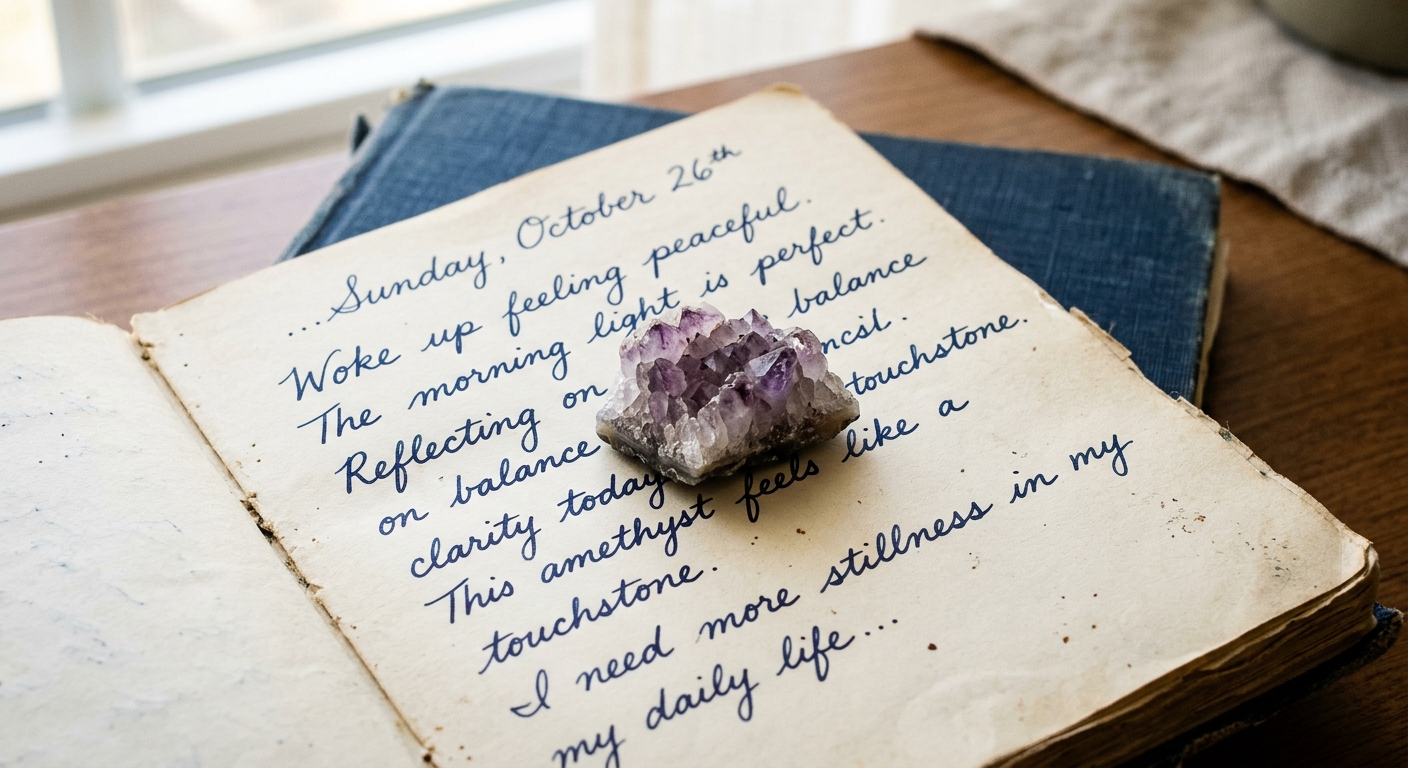 ...Sunday, October 26th
Woke up feeling peaceful.
The morning light is perfect.
Reflecting on balance
on balance
clarity today touchstone.
This amethyst feels like a
touchstone.
I need more stillness in my
my daily life...